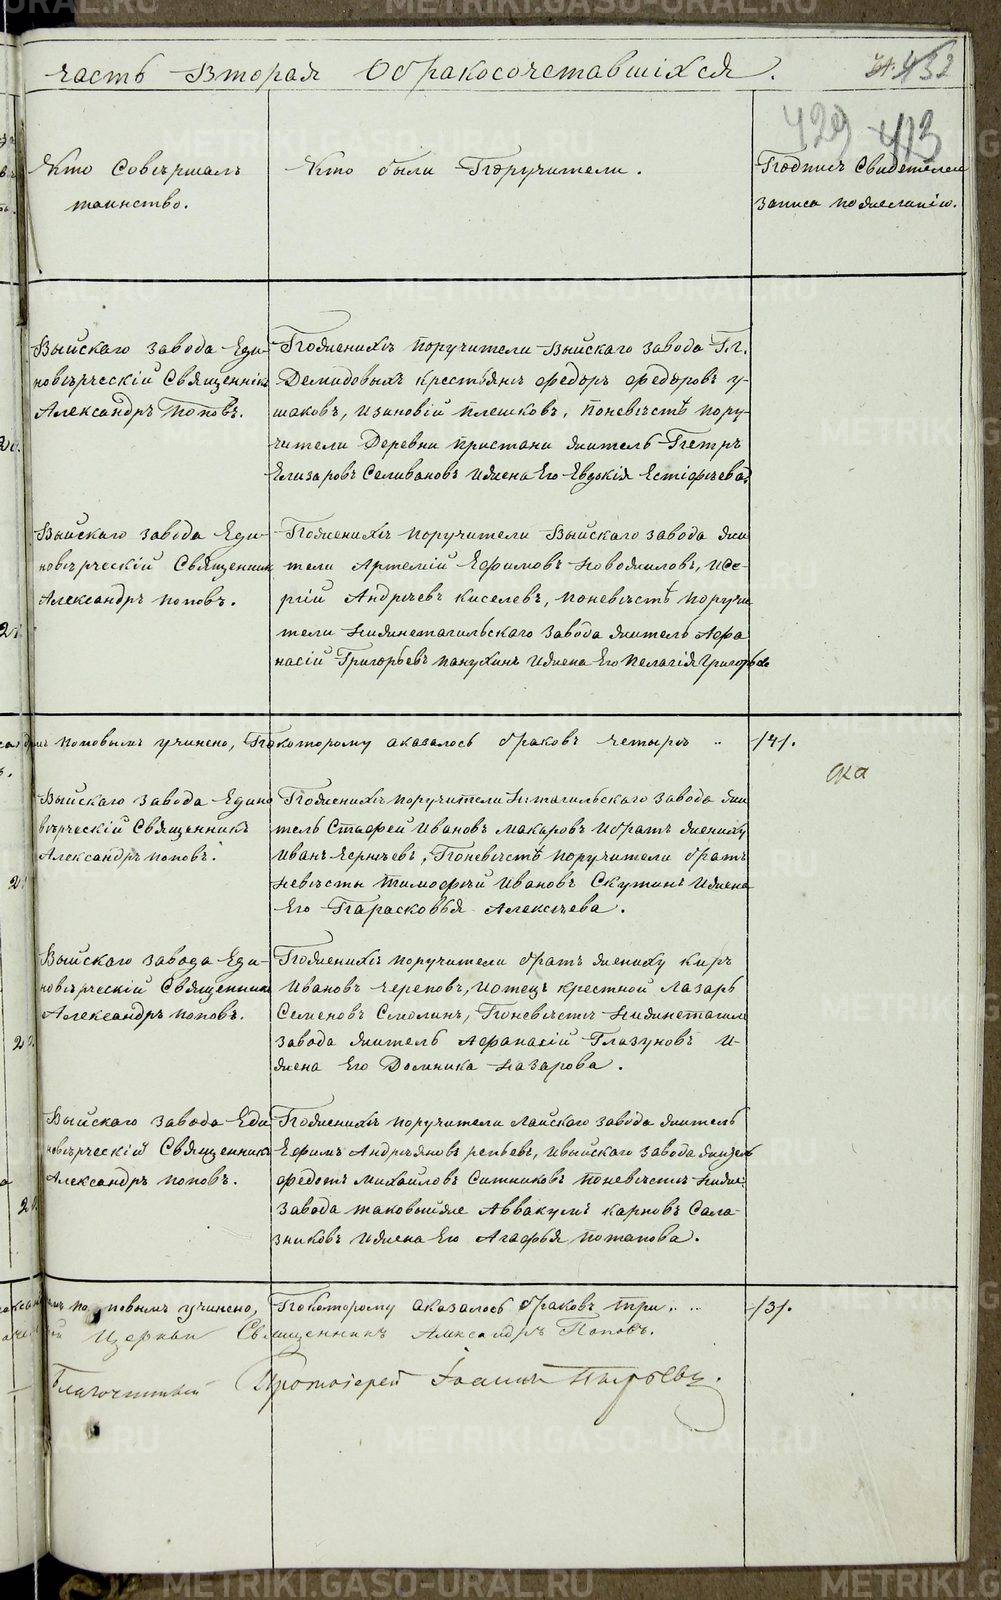 часть вторая Обракосочетавшихся.
432
429 413
Кто Совѣршалъ
таинство.
Кто были Поручители.
Подпись Свидетелей
записи пожеланію.
Выйскаго завода Еди-
новѣрческій Священникъ
Александръ Поповъ.
Поженихѣ поручители Выйскаго завода Г.г.
Демидовыхъ крестьяне Федоръ Федоровъ у-
шаковъ, Изановій Плешковъ, поневѣстѣ пору-
чители Деревни пристани житель Петръ
Елизаровъ Селивановъ ижена Его Евдокія Естіфѣева
Выйскаго завода Еди-
новѣрческій Священник
Александръ поповъ.
Поженихѣ поручители Выйскаго завода жи
тели Артемій Ефимовъ Новожиловъ, иСе-
ргій Андрѣевъ Киселевъ, поневѣстѣ поручи
тели Нижнетагильскаго завода житель Афа
насій Григорьевъ Панухинъ ижена Его Пелагія Григорь
Поповымъ учинено, Покоторому аказалось браковъ четыре .. /4/.
Выйскаго завода Едино
вѣрческій Священникъ
Александръ поповъ.
Поженихѣ поручители Нтагильскаго завода жи
тель Стафей Ивановъ Макаровъ ибратъ жениху
Иванъ , Поневѣстѣ поручители братъ
невѣсты Тимофѣй Ивановъ Скутинъ ижена
Его Парасковья Алексѣева.
Выйскаго завода Еди-
новѣрческій Священник
Александръ поповъ.
Поженихѣ поручители братъ жениху Киръ
Ивановъ Череповъ, иотецъ крестной Лазарь
Семеновъ Смолинъ, Поневѣстѣ Нижнетагил
завода житель Афанасій Глазуновъ и-
жена Его Домника Назарова.
Выйскаго завода Еди
новѣрческій Священникъ
Александръ поповъ.
Поженихѣ поручители Лайскаго завода житель
Ефимъ Андрѣяновъ репьевъ, ивыйскаго завода
Федотъ Михайловъ Ситниковъ поневѣстѣ Нижне
завода таковыйже Аввакумъ карповъ Сала-
зниковъ ижена Его Агафья потапова.
поповымъ учинено, Покоторому аказалось браковъ три. .. /3/.
Церкви Священникъ Александръ Поповъ.
Благочинный Протоіерей Іоаннъ Пырьевъ.